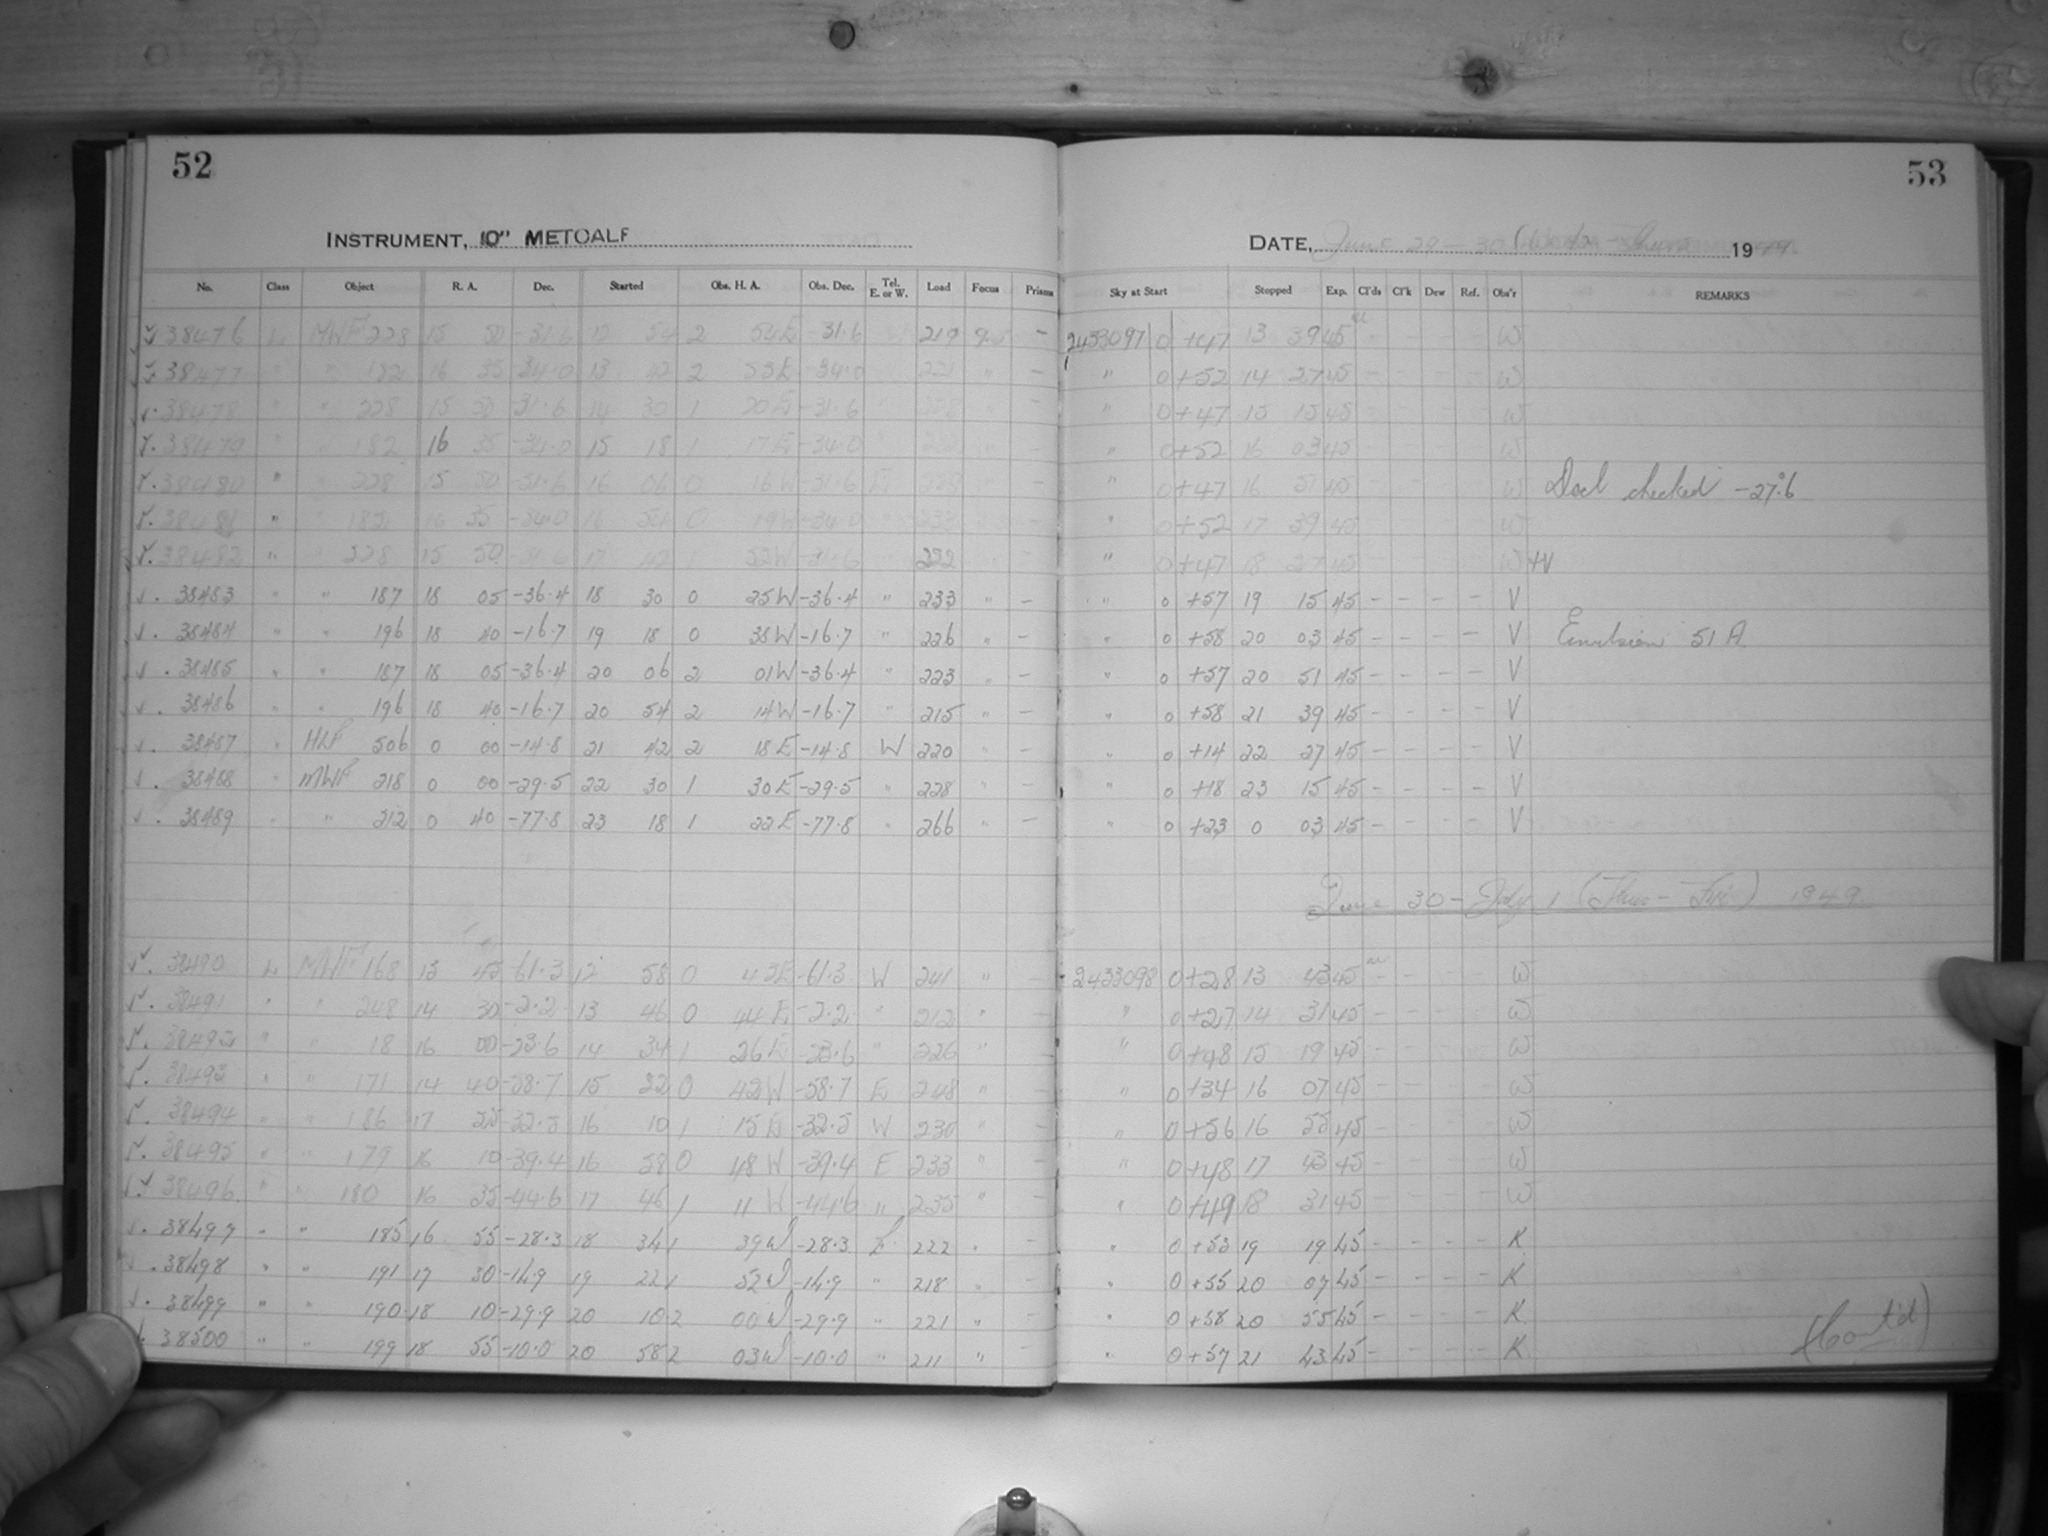 52
53
INSTRUMENT, 10" METCALF
DATE, June 29 - 30 1949
No. Class Object R. A. Dec. Started Obs. H. A. Obs. Dec. Tel. E. or W. Load Focus Prisms Sky at Start Stopped Exp. Cl'ds Cl'k Dew Ref. Obs'r REMARKS
38476 L MWF 228 15 50 -31.6 12 54 2 54E -31.6 219 - 2433097 0 +47 13 39 45 - - - - W
38477 " " 182 16 35 -34.0 13 42 2 53E -34.0 221 " - " 0 +52 14 27 45 - - - - W
38478 " " 228 15 50 -31.6 14 30 1 20E -31.6 " - " 0 +47 15 15 45 - - - - W
38479 " " 182 16 35 -34.0 15 18 1 17E -34.0 " - " 0 +52 16 03 45 - - - - W
38480 " " 228 15 50 -31.6 16 06 0 16W -31.6 E " - " 0 +47 16 51 45 - - - - W Decl checked -27°.6
38481 " " 182 16 35 -34.0 16 54 0 19W -34.0 " 233 " - " 0 +52 17 39 45 - - - - W
38482 " " 228 15 50 -31.6 17 42 1 52W -31.6 " 222 " - " 0 +47 18 27 45 - - - - W+V
38483 " " 187 18 05 -36.4 18 30 0 25W -36.4 " 233 " - " 0 +57 19 15 45 - - - - V
38484 " " 196 18 40 -16.7 19 18 0 38W -16.7 " 226 " - " 0 +58 20 03 45 - - - - V Emulsion 51 A.
38485 " " 187 18 05 -36.4 20 06 2 01W -36.4 " 223 " - " 0 +57 20 51 45 - - - - V
38486 " " 196 18 40 -16.7 20 54 2 14W -16.7 " 215 " - " 0 +58 21 39 45 - - - - V
38487 " HLF 506 0 00 -14.8 21 42 2 18E -14.8 W 220 " - " 0 +14 22 27 45 - - - - V
38488 " MWF 218 0 00 -29.5 22 30 1 30E -29.5 " 228 " - " 0 +18 23 15 45 - - - - V
38489 " " 212 0 40 -77.8 23 18 1 22E -77.8 " 266 " - " 0 +23 0 03 45 - - - - V
June 30 - July 1 (Thur - Fri) 1949
38490 L MWF 168 13 45 -61.3 12 58 0 43E -61.3 W 241 " - 2433098 0 +28 13 43 45 - - - - W
38491 " " 248 14 30 -2.2 13 46 0 44E -2.2 " 212 " - " 0 +27 14 31 45 - - - - W
38492 " " 18 16 00 -23.6 14 34 1 26E -23.6 " 226 " - " 0 +48 15 19 45 - - - - W
38493 " " 171 14 40 -58.7 15 22 0 42W -58.7 E 248 " - " 0 +34 16 07 45 - - - - W
38494 " " 186 17 25 -32.5 16 10 1 15E -32.5 W 230 " - " 0 +56 16 55 45 - - - - W
38495 " " 179 16 10 -39.4 16 58 0 48W -39.4 E 233 " - " 0 +48 17 43 45 - - - - W
38496 " " 180 16 35 -44.6 17 46 1 11W -44.6 " 235 " - " 0 +49 18 31 45 - - - - W
38497 " " 185 16 55 -28.3 18 34 1 39W -28.3 E 222 " - " 0 +53 19 19 45 - - - - K
38498 " " 191 17 30 -14.9 19 22 1 52W -14.9 " 218 " - " 0 +55 20 07 45 - - - - K
38499 " " 190 18 10 -29.9 20 10 2 00W -29.9 " 221 " - " 0 +58 20 55 45 - - - - K
38500 " " 199 18 55 -10.0 20 58 2 03W -10.0 " 211 " - " 0 +57 21 43 45 - - - - K
(Cont'd)